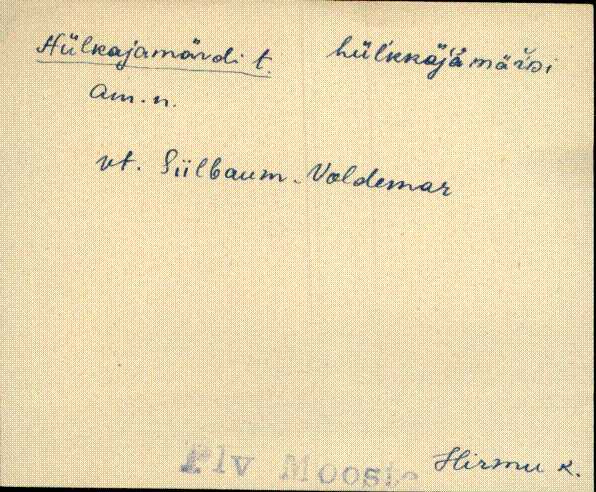 Hülkajamärdi t. hülkkäjämärDi
am. n.
vt. Sülbaum - Voldemar
Plv Mooste Hirmu k.